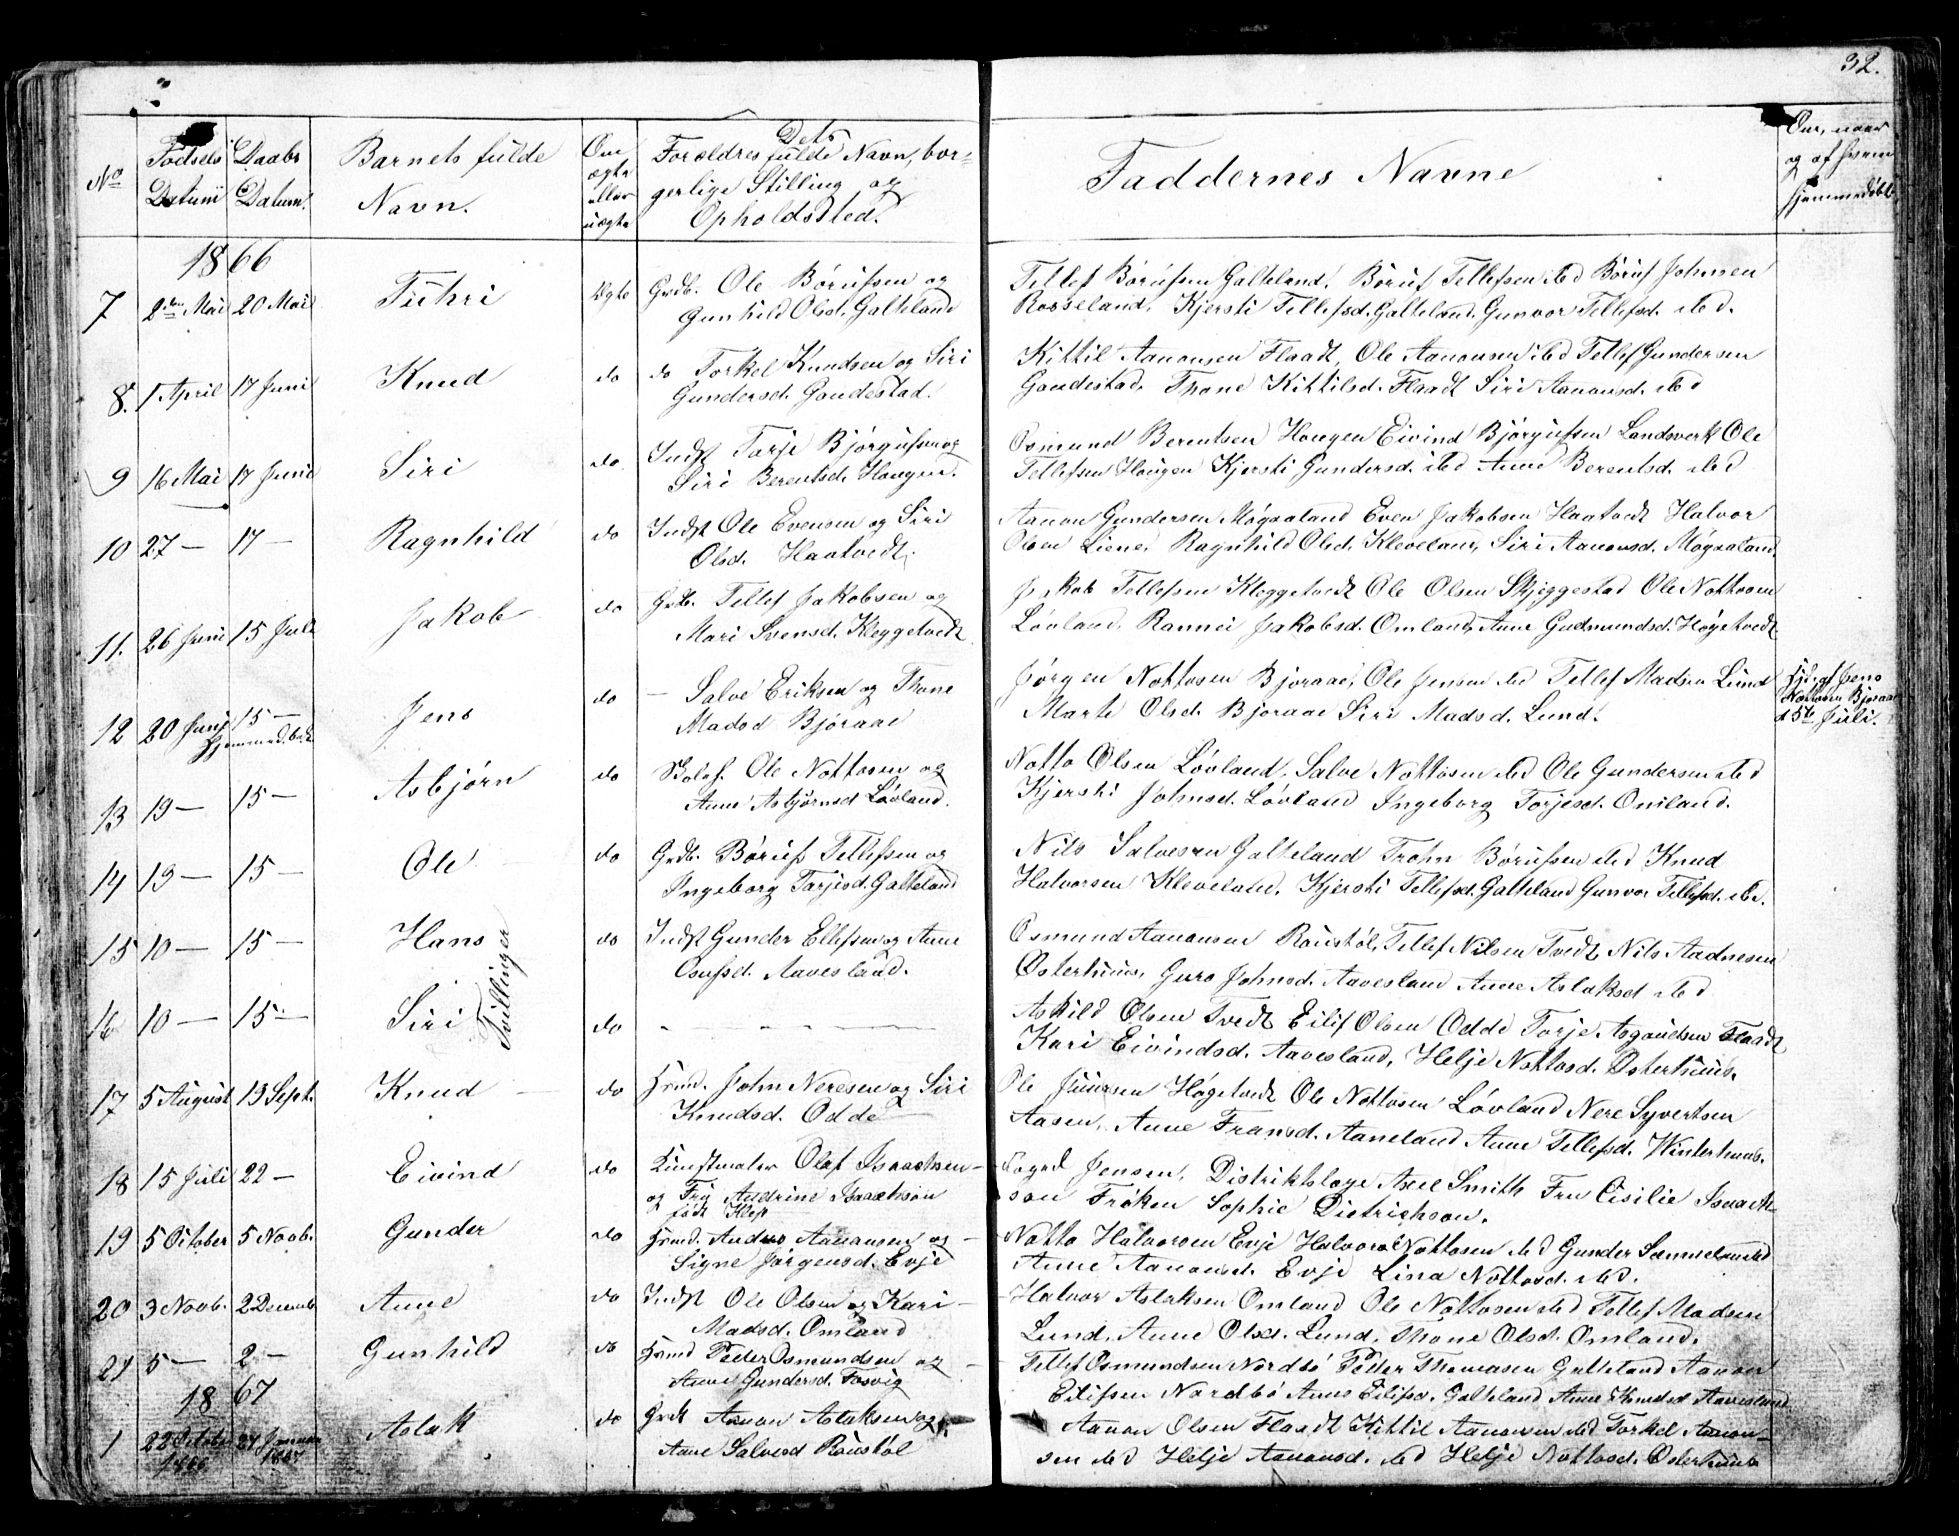 32.
No
Fødsels
Datum
Daabs
Datum.
Barnets fulde
Navn.
Om
ægte
eller
uægte
Dets
Forældres fulde Navn, bor-
gerlige Stilling og
Opholdssted.
Faddernes Navne
Om, naar
og af hvem
hjemmedøbt
1866
7 2den Mai 20 Mai Tuhri Ægte Grdb. Ole Børufsen og
Gunhild Olsd. Galteland
Tellef Børufsen Galteland, Børuf Tellefsen ibd Børuf Johnsen
Rosseland, Kjersti Tellefsd. Galteland Gunvor Tellefsd. ibd.
8. 1 April 17 Juni Knud do do Torkel Knudsen og Siri
Gundersd. Gaudestad.
Kittil Aanonsen Flaadt, Ole Aanonsen ibd Tellef Gundersen
Gaudestad, Thone Kittilsd. Flaadt Siri Aanonsd. ibd
9 16 Mai 17 Juni Siri do Indst Torje Bjørgufsen og
Siri Berentsd. Hougen.
Osmund Berentsen Hougen Eivind Bjørgufsen Landsverk Ole
Tellefsen Hougen Kjersti Gundersd. ibd Anne Berentsd. ibd
10 27 — 17 — Ragnhild do Indst Ole Evensen og Siri
Olsd. Haatvedt.
Aanon Gundersen Møgaaland Even Jakobsen Haatvedt Halvor
Olsen Liene, Ragnhild Olsd. Kleveland, Siri Aanonsd. Møgaaland
11. 26 Juni 15 Juli Jakob do Grdb. Tellef Jakobsen og
Mari Svensd. Kleggetvedt
Jakob Tellefsen Kleggetvedt Ole Olsen Skjeggestad Ole Nottosen
Løvland, Rannei Jakobsd. Omland, Anne Gudmundsd. Høgetvedt
12 20 Juni 15 — Jens do — Salve Eriksen og Thone
Hjemmedøbt
Madsd Bjoraae
Jørgen Nottosen Bjoraae, Ole Jensen ibd Tellef Madsen Lund
Marte Olsd. Bjoraae Siri Madsd. Lund.
Hjd. af Jens
Nottosen Bjoraae
d 5te Juli.
13 19 — 15 — Asbjørn do Ole Nottosen og
Anne Asbjørnsd Løvland.
Notto Olsen Løvland, Salve Nottosen ibd Ole Gundersen ibd
Kjersti Johnsd. Løvland Ingeborg Torjesd. Omland.
14 19 — 15 — Ole do Grdb. Børuf Tellefsen og
Ingeborg Tarjesd. Galteland
Nils Salvesen Galteland Trohn Børufsen ibd Knud
Halvorsen Kleveland, Kjersti Tellefsd. Galteland Gunvor Tellefsd. ibd.
15 10 — 15 — Hans do Indst Gunder Ellefsen og Anne
Osufsd. Aavesland.
Osmund Aanonsen Roustøl, Tellef Nilsen Tvedt, Nils Aadnesen
Østerhuus, Guro Johnsd. Aavesland Anne Aslaksd ibd
Tvillinger
16 10 — 15 — Siri do — — — —
Askild Olsen Tvedt Eilif Olsen Odde Torje Asgautsen Flaadt
Kari Eivindsd. Aavesland, Helje Nottosd. Østerhuus.
17 5 August 13 Sept. Knud do Hmd. John Neresen og Siri
Knudsd. Odde
Ole Høgetvedt Ole Nottosen Løvland Nere Syvertsen
Aasen, Anne Fransd. Aaneland Anne Tellefsd. Winterhuus.
18 15 Juli 22 — Eivind do Kunstmaler Olaf Isaachsen
og Fru Andrine Isaachsen
født Kløp
Foged Jensen, Distriktslæge Axel Smith Fru Cisilie Isaach-
sen Frøken Sophie Dietrichson.
19 5 October 5 Novb. Gunder do Hmd. Anders Aanonsen og
Signe Jørgensd. Evje
Notto Halvorsen Evje Halvor Nottosen ibd Gunder Samuelsen ibd
Anne Aanonsd. Evje Lina Nottosd. ibd.
20 3 Novb. 2 Decemb. Anne do Indst Ole Olsen og Kari
Madsd. Omland
Halvor Aslaksen Omland Ole Nottosen ibd Tellef Madsen
Lund, Anne Olsd. Lund, Thone Olsd. Omland.
21 5 — 2 — Gunhild do Hmd Peder Osmundsen og
Anne Gundersd. Fosvig
Tellef Osmundsen Nordbø Peder Thomasen Galteland Aanon
Eilifsen Nordbø Anne Eilifsd. Galteland Anne Knudsd Aavesland
1867
1 22 Octob. 27 Januar Aslak do Grdb Aanon Aslaksen og
1866 1867
Anne Salvesd Roustøl
Aanon Olsen Flaadt Kittil Aanonsen ibd Torkel Aanon-
sen ibd Helje Aanonsd. ibd Helje Nottosd. Østerhuus